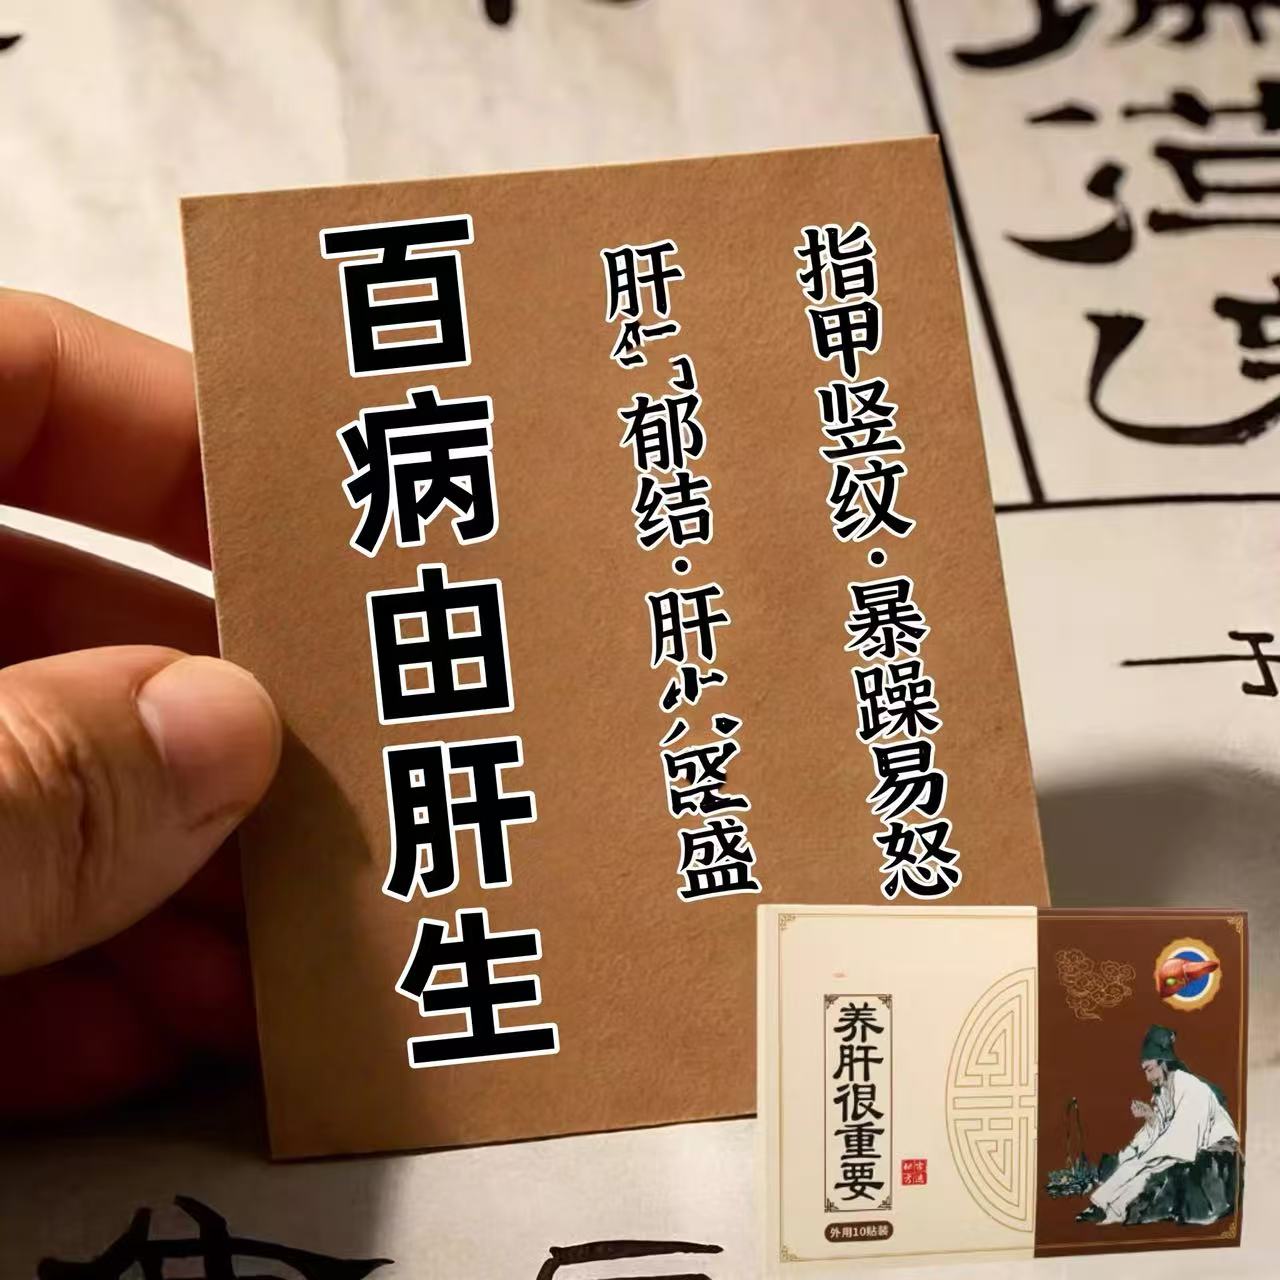 指甲竖纹·暴躁易怒
肝郁结·肝盛
百病由肝生
养肝很重要
外用10贴装